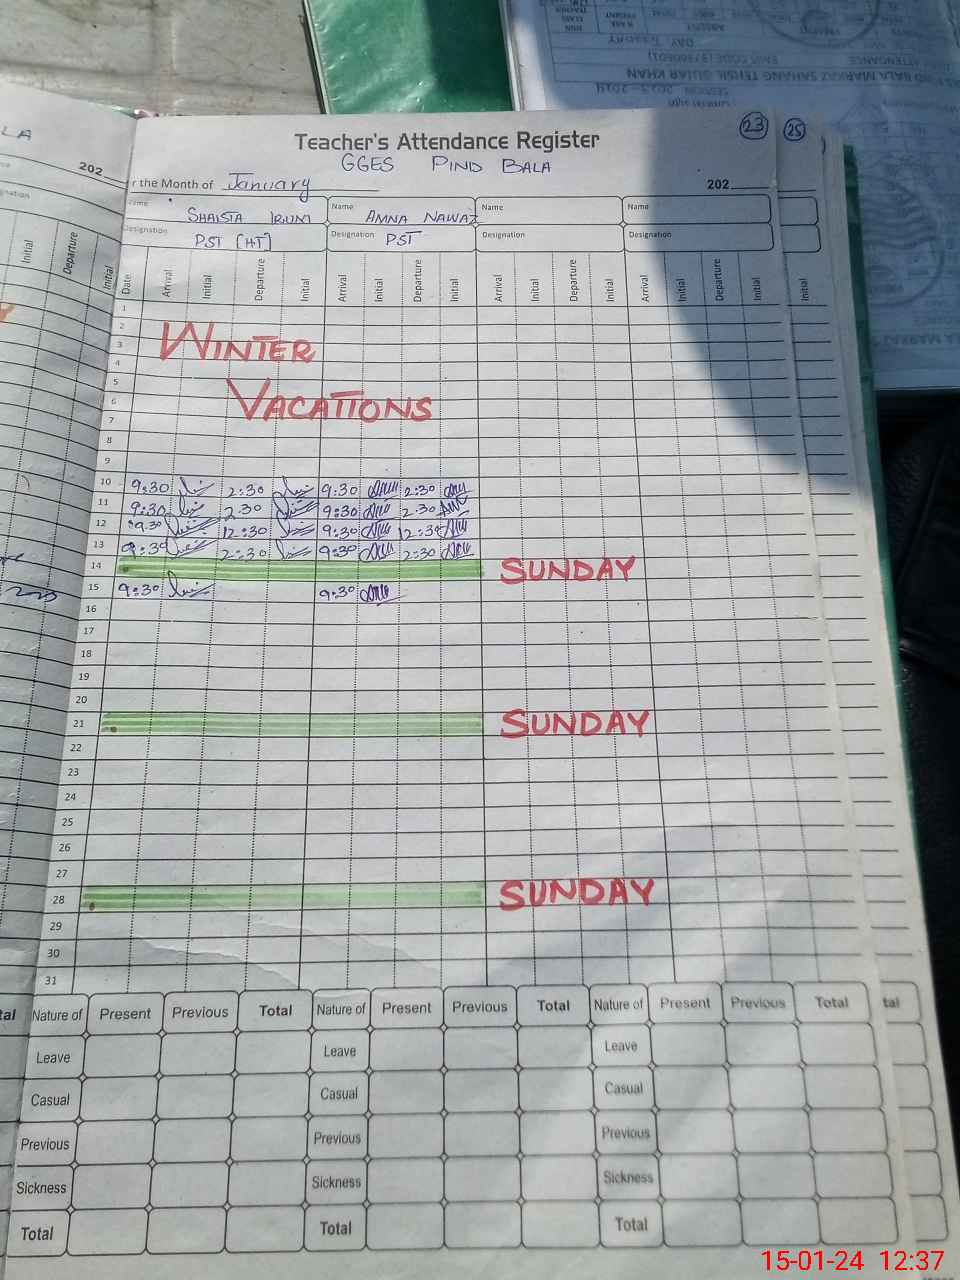 Teacher's Attendance Register
23
25
GGES PIND BALA
LA
202
r the Month of January
202
Name SHAISTA IRUM Name AMNA NAWAZ Name Name
Designation PST (HT) Designation PST Designation Designation
Initial Departure Initial Date Arrival Initial Departure Initial Arrival Initial Departure Initial Arrival Initial Departure Initial Arrival Initial Departure Initial Initial
1
2
WINTER
3
4
5
VACATIONS
6
7
8
9
10 9:30 2:30 9:30 2:30
11 9:30 2:30 9:30 2:30
12 9:30 12:30 9:30 12:30
13 9:30 2:30 9:30 2:30
14 SUNDAY
15 9:30 9:30
16
17
18
19
20
21 SUNDAY
22
23
24
25
26
27
28 SUNDAY
29
30
31
tal Nature of Present Previous Total Nature of Present Previous Total Nature of Present Previous Total tal
Leave Leave Leave
Casual Casual Casual
Previous Previous Previous
Sickness Sickness Sickness
Total Total Total
15-01-24 12:37